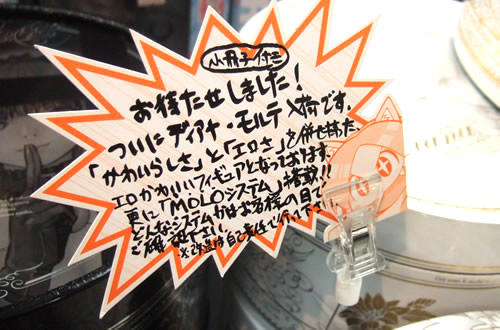 小冊子付き
お待たせしました！
ついにディアナ・モルテ入荷です。
「かわいらしさ」と「エロさ」を併せ持った、
エロかわいいフィギュアとなっております。
更に「MOLOシステム」搭載!!
どんなシステムかはお客様の目で
ご確認下さい。
※改造は自己責任で行って下さい